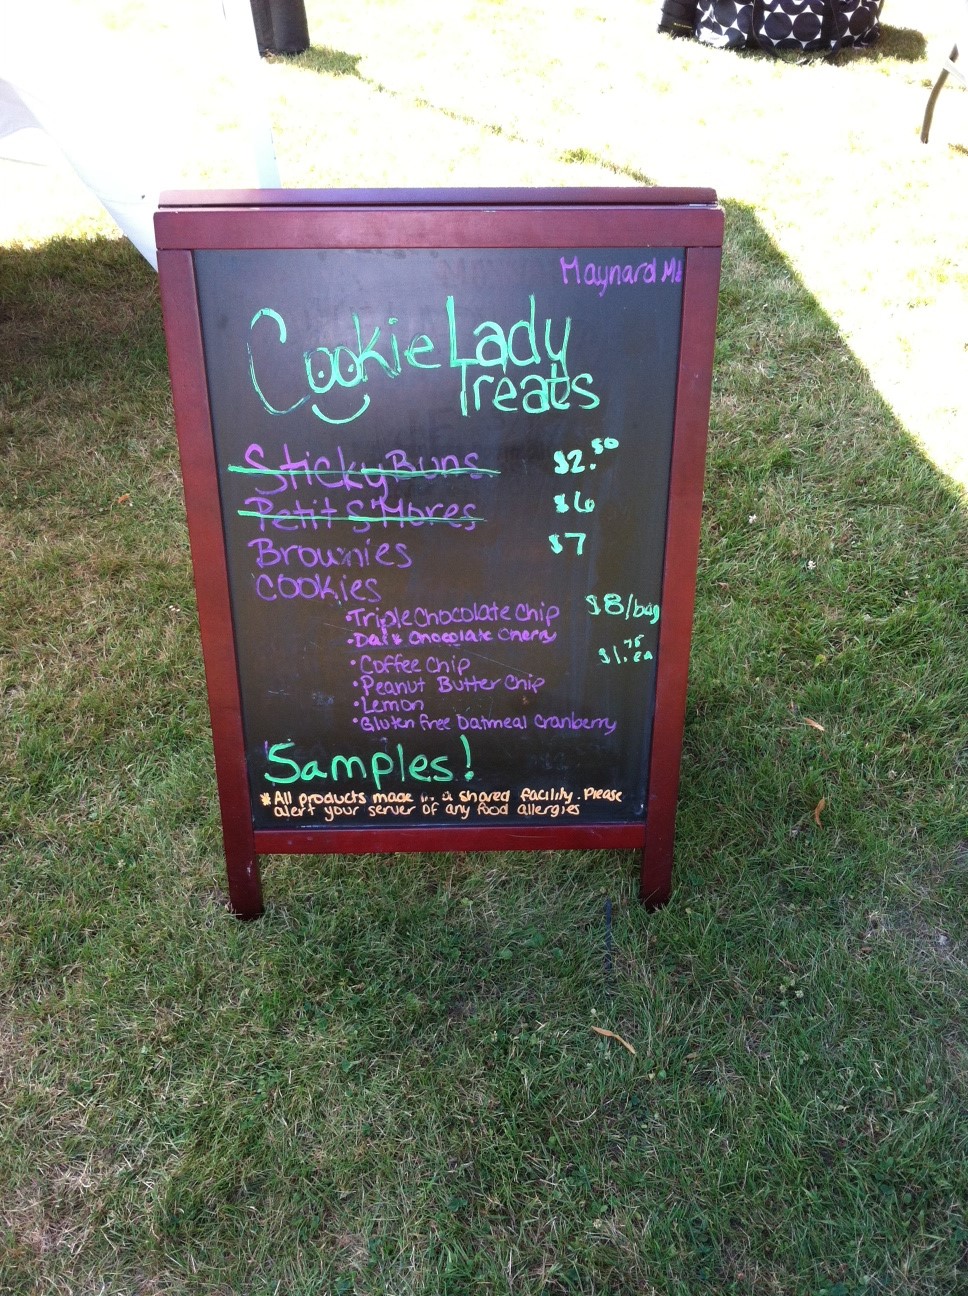 Maynard Ma
Cookie Lady
Treats
Sticky Buns $2.50
Petit S'Mores $6
Brownies $7
Cookies
•Triple Chocolate Chip $8/bag
•Dark Chocolate Cherry
$1.75 ea
•Coffee Chip
•Peanut Butter Chip
•Lemon
•Gluten Free Oatmeal Cranberry
Samples!
*All products made in a shared facility. Please
alert your server of any food allergies